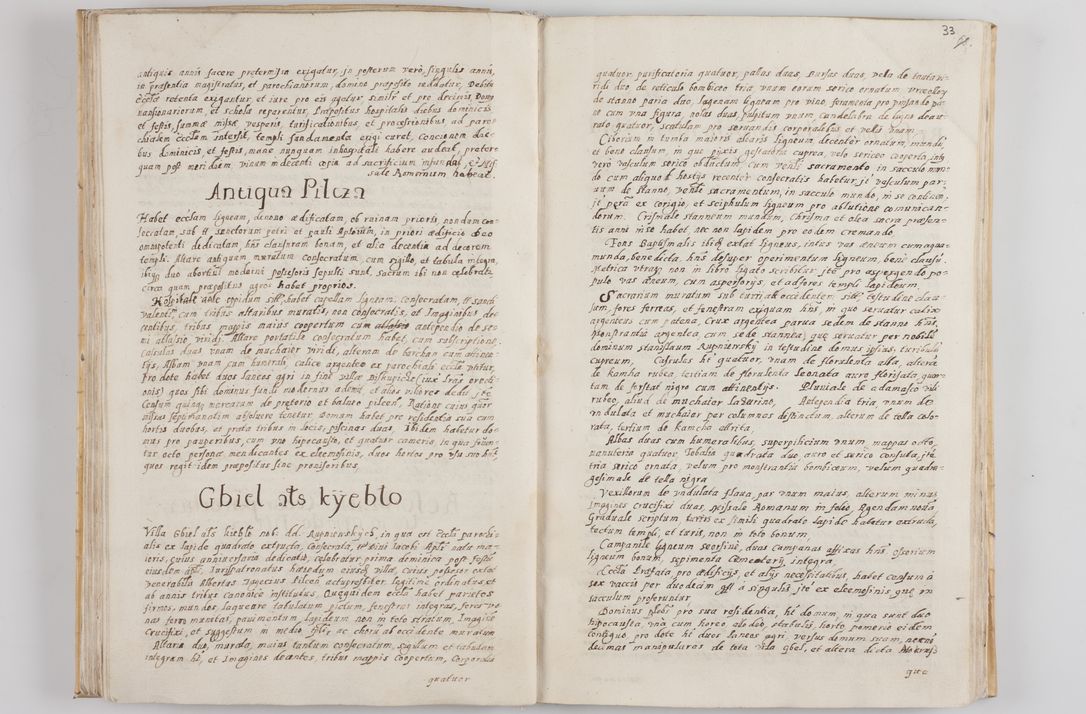 antiquis annis facere pretermisso exigatur, in posterum verò, singulis annis,
in præsentia magistratus, et parochianorum, domino præposito reddatur, Debita
eccłæ retenta exigantur, et iure pro eis agatur simili et pro decimis, Domus
mansionariorum, et schola reparentur, Præpositus hospitalis diebus dominicis
et festis, summæ missæ vesperis, turificationibus, et processionibus ad paro=
chialem ecclam intersit, templi fundamenta erigi curet, concionem die=
bus dominicis et festis, mane nunquam in hospitali habere audeat, præter=
quam post meridiem, vinum in decenti copia ad sacrificium
sale Romanum habeat.
Antiqua Pilcza
Habet ecclam ligneam, denouo ædificatam, ob ruinam prioris nondum con=
secratam, sub tt sanctorum petri et pauli Aptorum, in priori ædificio deo
omnipotenti dedicatam, hns clausuram bonam, et alia decentia ad decorem
templi. Altare antiquum muratum consecratum, cum sigillo, et tabula integra,
ibiq duo abortiui moderni possessoris sepulti sunt, sacrum ibi non celebratur
circa quam præpositus agros habet proprios.
Hospitale ante oppidum sitt, habet capellam ligneam, consecratam, tt sancti
valentii, cum tribus altaribus muratis, non consecratis, et Imaginibus de=
centibus, tribus mappis maius coopertum cum antipendio de se=
mi attlasio, viridi. Altare portatile consecratum habet, cum subscriptione,
Casulas duas vnam de muchaier viridi, alteram de barchan cum attinen=
tijs, Albam vnam cum humerali, calice argenteo ex parochiali eccła vtitur,
Pro dote habet duos laneos agri in fine villæ Biskupice
quos sibi dominus fundi modernus ademit, et alios viliores dedit, ite
Censum quinq marcarum de prætorio et balneo pilcen, Ratione cuius quat=
missas septimanatim absoluere tenetur. Domum habet pro residentia sua cum
hortis duobus, et prata tribus in locis, piscinas duas. Ibidem habetur do=
mus pro pauperibus, cum vno hipocausto, et quatuor cameris, in qua fouen=
tur octo personæ mendicantes ex eleemosinis, duos hortos pro vsu suo hnt,
quos regit idem præpositus sine prouisoribus.
Gbiel ałs kÿebło
Villa Gbiel ałs kiebło nob. dd. Rupniewskych, in qua est Eccła parochi=
alis ex lapide quadrato extructa, consecrata, tt diui Iacobi Apli natu ma=
ioris, cuius anniuersaria dedicatio, celebratur prima dominica post festum
eiusdem apli, Iurispatronatus hæredum eiusdem villæ, cuius possessor extat
venerabilis Albertus Ingecius Pilcen actu presbiter legitime ordinatus, et
ab annis tribus canonice institutus. Quæquidem eccła habet parietes
firmos, mundos, laqueare tabulatum pictum, fenestras integras, fores bo=
nas, seras munitas, pauimentum lapideum non in toto stratum, Imaginem
Crucifixi, et suggestum in medio, chorum ab occidente muratum
Altaria duo, murata, maius tantum consecratum, sigillum et tabulam
integram ht, et Imagines decentes, tribus mappis coopertum, Corporalia
quatuor
33
quatuor, purificatoria quatuor, pallas duas, bursas duas, vela de tauta vi=
ridi duo, de reticulo bombiceo tria, vnum eorum serico ornatum, vrceolorum
de stanno paria duo, lagenam ligneam pro vino, feramenta pro pinsando pa=
ne cum vna figura, nolas duas, pulpitum vnum, candelabra de ligno deau=
rato quatuor, scatulam pro seruandis corporalibus et velis vnam.
Ciborium in tumba maioris altaris ligneum decenter ornatum, mundum,
et bene clausum, in quo pixis gestatoria cuprea, velo sericeo cooperta, intus
verò vasculum serico obductum cum venli sacramento in sacculo mun=
do cum aliquot hostijs recenter consecratis habetur, it vasculum par=
uum de stanno, venle sacramentum, in sacculo mundo, in se continens,
it pera ex corigio, et sciphulum ligneum pro ablutione comunican=
dorum. Crismale stanneum mundum, Chrisma et olea sacra præsen=
tis anni in se habet, nec non lapidem pro eodem cremando.
Fons Baptismalis ibidem extat ligneus, intus vas æneum cum aqua
munda, benedicta, hns desuper operimentum ligneum, bene clausum.
Metrica vtraq non in libro ligato scribitur, ite pro aspergendo po=
pulo vas æneum, cum aspersorijs, et ad fores templi lapideum.
Sacrarium muratum sub turri ab occidente sitt, testudine clau=
sum, fores ferreas, et fenestram exiguam hns, in quo seruatur calix
argenteus cum patena, Crux argentea parua sedem de stanno hns,
Monstrantia argentea, cum sede stannea, quæ seruatur per nobilem
dominum stanislaum Rupniewsky in testudine domus ipsius, turribulum
cupreum. Casulas ht quatuor, vnam de florulenta alba, alteram
de kamha rubea, tertiam de florulenta leonata auro florisata, quar=
tam de nigro cum attinentijs. Pluuiale de adamasco vili
rubeo, aliud de muchaior lazurino. Antependia tria, vnum de
vndulata et muchaier per columnas distinctum, alterum de tella colo=
rata, tertium de kamcha attrita.
Albas duas cum humeralibus, superpilicium vnum, mappas octo,
manuteria quatuor, Tobalia quadrata duo, auro et serico consuta, ite
tria serico ornata, velum pro monstrantia bombiceum, velum quadra=
gesimale de tella nigra
Vexillorum de vndulata flaua, par vnum maius, alterum minus,
Imagines crucifixi duas, Missale Romanum in folio, Agendam noua,
Graduale scriptum turris ex simili quadrato lapide habetur extructa,
tectum templi, et turis, non in toto bonum.
Campanile ligneum seorsiue, duas campanas affixas hns, osserium
ligneum bonum, sepimenta Cæmeterij, integra.
Eccła Præfata pro ædificijs, et alijs necessitatibus, habet censum à
sex vaccis per duodecim à singulis, ite ex eleemosinis quæ in
sacculum proferuntur.
Dominus plebs pro sua residentia, ht domum, in qua sunt duo
hipocausta, vna cum horeo alodio, stabulis, horto, pomerio eidem
contiguo, pro dote ht duos laneos agri, versus domum suam, necnon
decimas manipulares de tota villa gbel, et altera dicta Mokrus
quæ